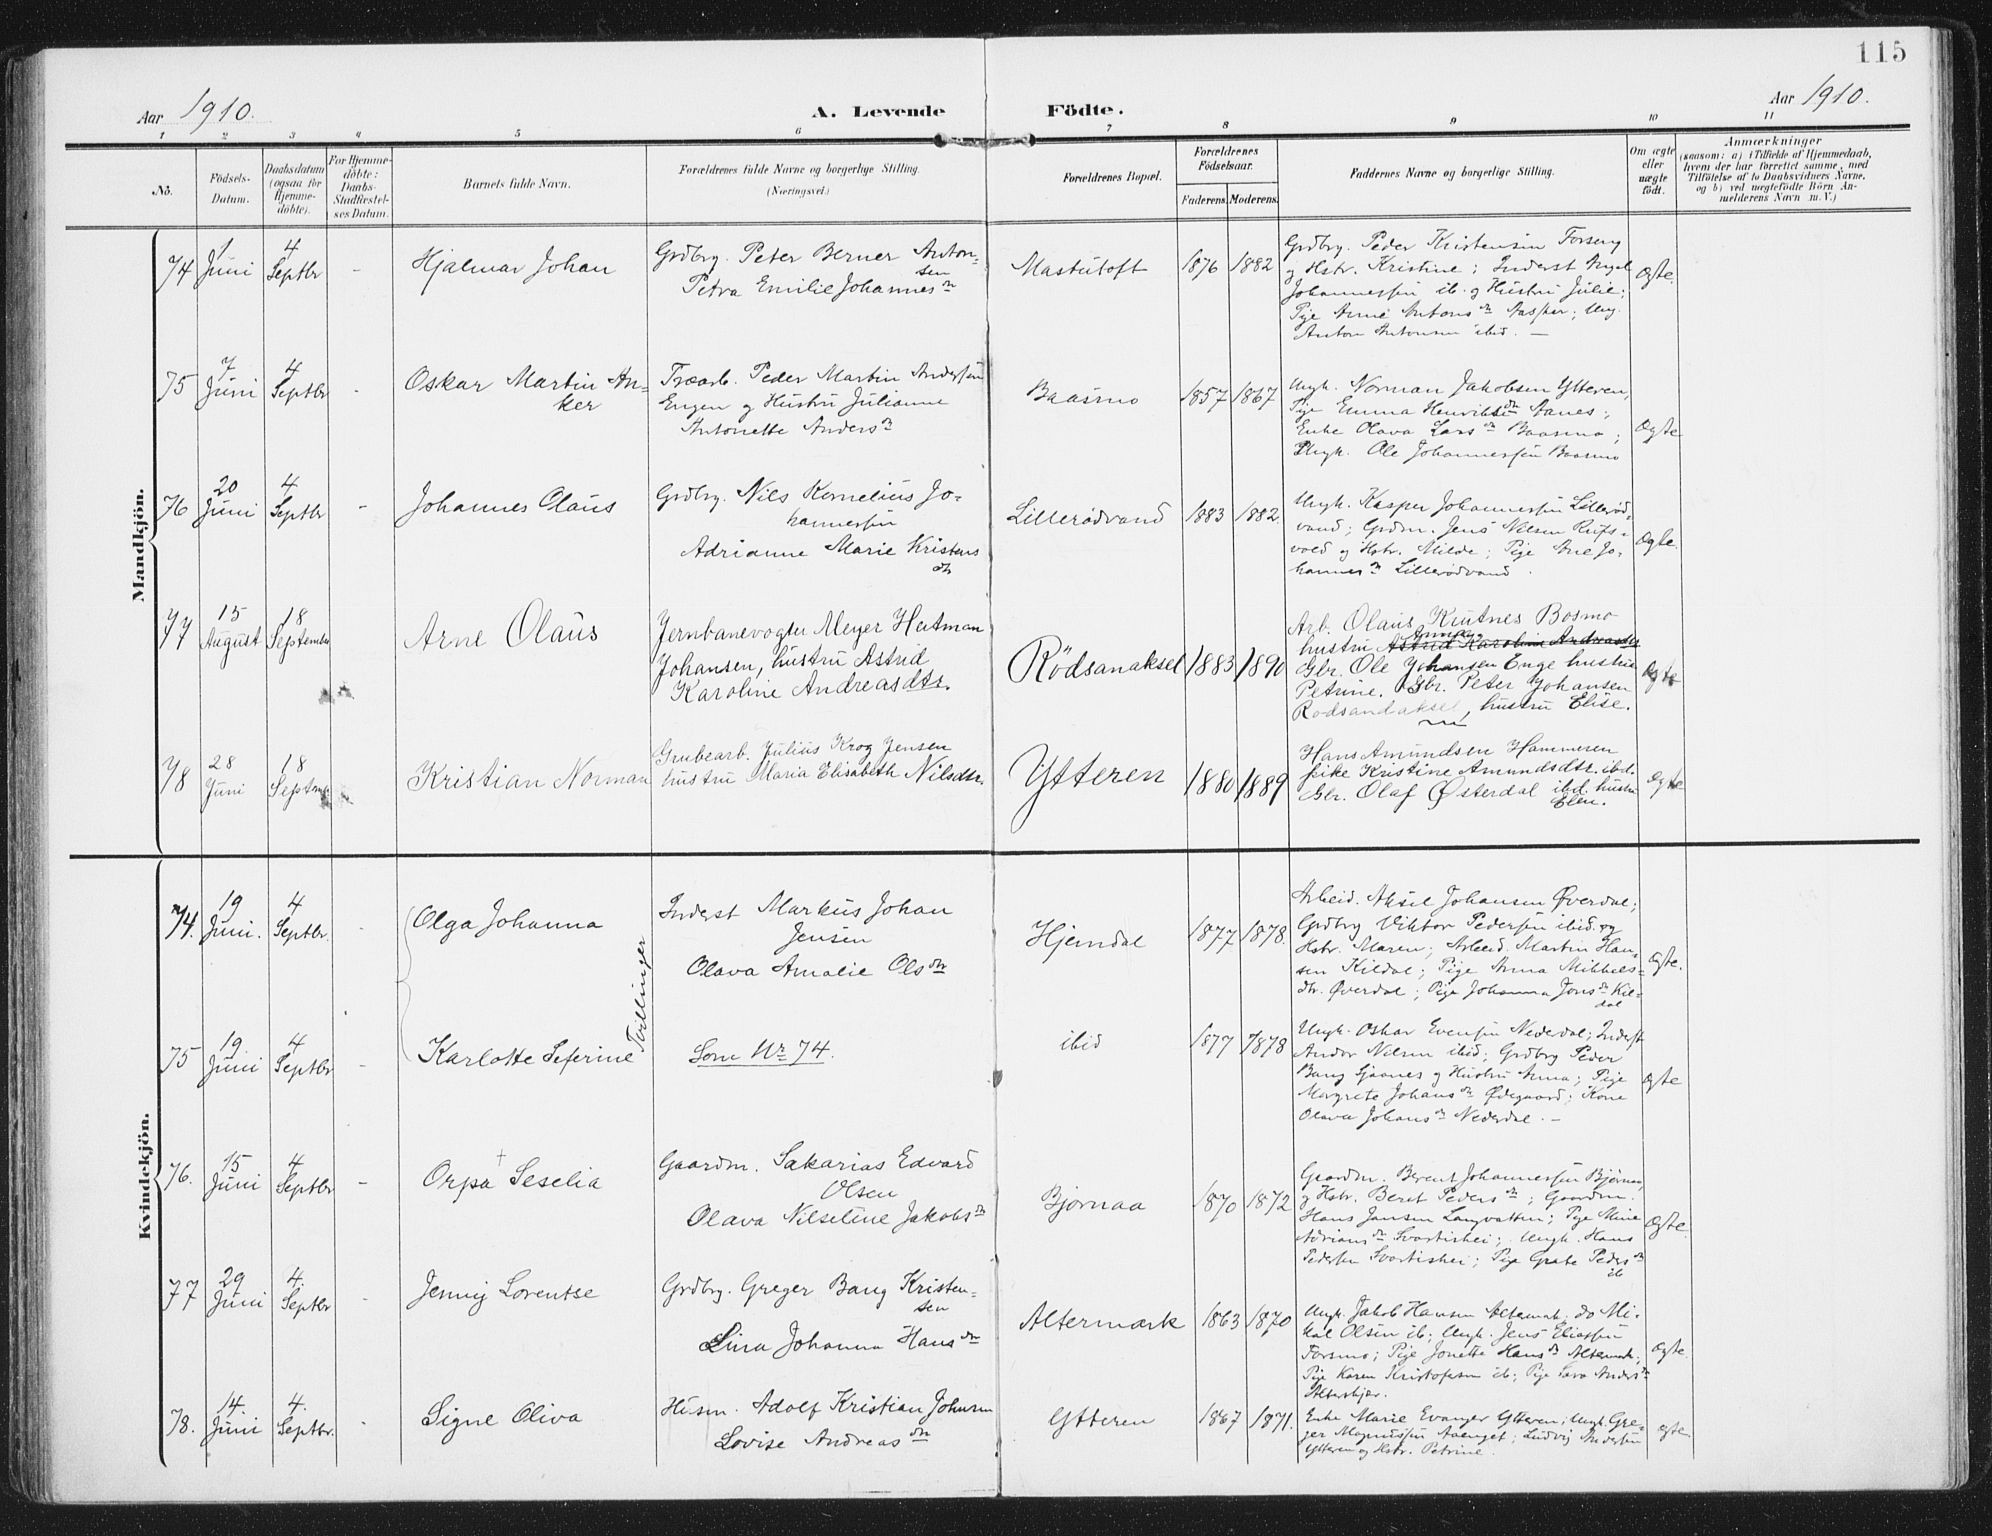 115
Aar 1910.
A. Levende Födte.
Aar 1910.
1 2 3 4 5 6 7 8 9 10 11
No.
Födsels-
Datum.
Daabsdatum
(ogsaa for
Hjemme-
döbte).
For Hjemme-
döbte:
Daabs-
Stadfæstel-
ses Datum.
Barnets fulde Navn.
Forældrenes fulde Navne og borgerlige Stilling.
(Næringsvei.)
Forældrenes Bopæl.
Forældrenes
Födselsaar.
Faderens. Moderens.
Faddernes Navne og borgerlige Stilling.
Om ægte
eller
uægte
födt.
Anmærkninger
(saasom: a) i Tilfælde af Hjemmedaab,
hvem der har forrettet samme, med
Tilföielse af to Daabsvidners Navne,
og b) ved uægtefödte Börn An-
melderens Navn m. V.)
Mandkjön.
74
1
Juni
4
Septbr
-
Hjalmar Johan
Grdbrg. Peter Berner Anton-
sen
Petra Emilie Johannesdtr
Mastutoft
1876
1882
Grdbrg. Peder Kristensen Forseng
og Hstr. Kristine; Inderst
Johannessen ib. og Hustru Julie;
Pige Anne Antonsdtr ; Ung.
Anton Antonsen ibid. —
Ægte.
75
7
Juni
4
Septbr
-
Oskar Martin An-
ker
Træarb. Peder Martin Andersen
Engen og Hustru Julianne
Antonette Andersdtr
Baasmo
1857
1867
Ungk. Norman Jakobsen Ytteren,
Pige Emma Henriksdtr Aanes;
Enke Olava Larsdtr Baasmo;
Ungk. Ole Johannessen Baasmo
Ægte
76
20
Juni
4
Septbr
-
Johannes Olaus
Grdbrg. Nils Kornelius Jo-
hannessen
Adrianne Marie Kristens
dtr
Lillerødvand
1883
1882.
Ungk. Kasper Johannessen Lillerød-
vand; Grdm. Jens Nilsen Rufs-
vold og Hstr. Milde; Pige Ane Jo-
hannesdtr Lillerødvand.
Ægte.
77
15
August
18
September
Arne Olaus
Jernbanevogter Meyer Hutman
Johansen, hustru Astrid
Karoline Andreasdtr.
Rödsanaksel
1883
1890
Arb. Olaus Krutnes Bosmo
Anna
hustru Astrid Karoline Andreasdtr
Gbr. Ole Johansen Enge hustru
Petrine. Gbr. Peter Johansen
Rodsandaksel, hustru Elise.
Ægte
78
28
Juni
18
Septmr
Kristian Norman
Grubearb. Julius Krog Jensen
hustru Maria Elisabeth Nilsdtr.
Ytteren
1880
1889
Hans Amundsen Hammeren
pike Kristine Amundsdtr. ibd.
Gbr. Olaf Østerdal ibd. hustru
Elen.
Ægte
Kvindekjön.
74.
19
Juni.
4
Septbr.
-
Olga Johanna
Tvillinger
Inderst Markus Johan
Jensen
Olava Amalie Olsdtr
Hjemdal
1877
1878.
Arbeid. Aksel Johansen Øverdal;
Grdbrg Viktor Pedersen ibid. og
Hstr. Maren; Arbeid. Martin Han-
sen Kildal; Pige Anna Mikkels-
dtr. Øverdal; Pige Johanna Jonsdtr Kil-
dal
Ægte.
75
19
Juni
4
Septbr
-
Karlotte Seferine
Som Nr 74.
ibid
1877
1878
Ungk. Oskar Evensen Nederdal; Inderst
Andor Nilsen ibid; Grdbrg Peder
Bang Sjaanes og Hustru Anna; Pige
Margrete Johansdtr Ødegaard; Kone
Olava Johansdtr Nederdal. —
Ægte
76.
15
Juni
4
Septbr
-
Orpa Seselia
Gaardm. Sakarias Edvard
Olsen
Olava Nilseline Jakobsdtr
Bjørnaa
1870
1872
Gaardm. Berent Johannessen Bjørnaa,
og Hstr. Beret Pedersdtr; Gaardm.
Hans Jansen Langvatten; Pige Mine
Adriansdtr Svartishei; Ungk. Hans
Pedersen Svartishei; Pige Grete Pedersdtr
ib
Ægte.
77
29
Juni
4.
Septbr
-
Jenny Lorentse
Grdbrg. Greger Bang Kristen-
sen
Lina Johanna Hansdtr
Altermark
1863
1870
Ungk. Jakob Hansen Altermark; do Mi-
kal Olsen ib; Ungk. Jens Eliassen
Forsmo; Pige Jonette Hansdtr Altermark;
Pige Karen Kristofersen ib; Pige Lava Andersdtr
Altersbjør.
Ægte.
78.
14.
Juni
4.
Septbr.
-
Signe Oliva
Husm. Adolf Kristian Johnsen
Lovise Andreasdtr
Ytteren
1867
1871.
Enke Marie Evanger Ytteren; Ungk. Gre-
ger Magnussen Aaenget; Ludvig Andersen
Ytteren og Hstr. Petrine.
Ægte